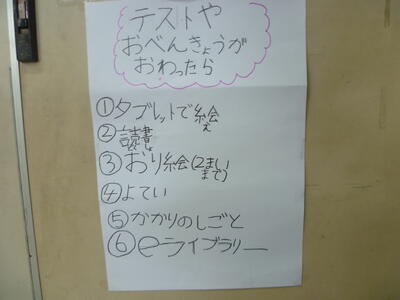 テストや
おべんきょうが
おわったら
①タブレットで絵
え
②読書
どくしょ
③おり絵(2まい
まで)
④よてい
⑤かかりのしごと
⑥eライブラリー